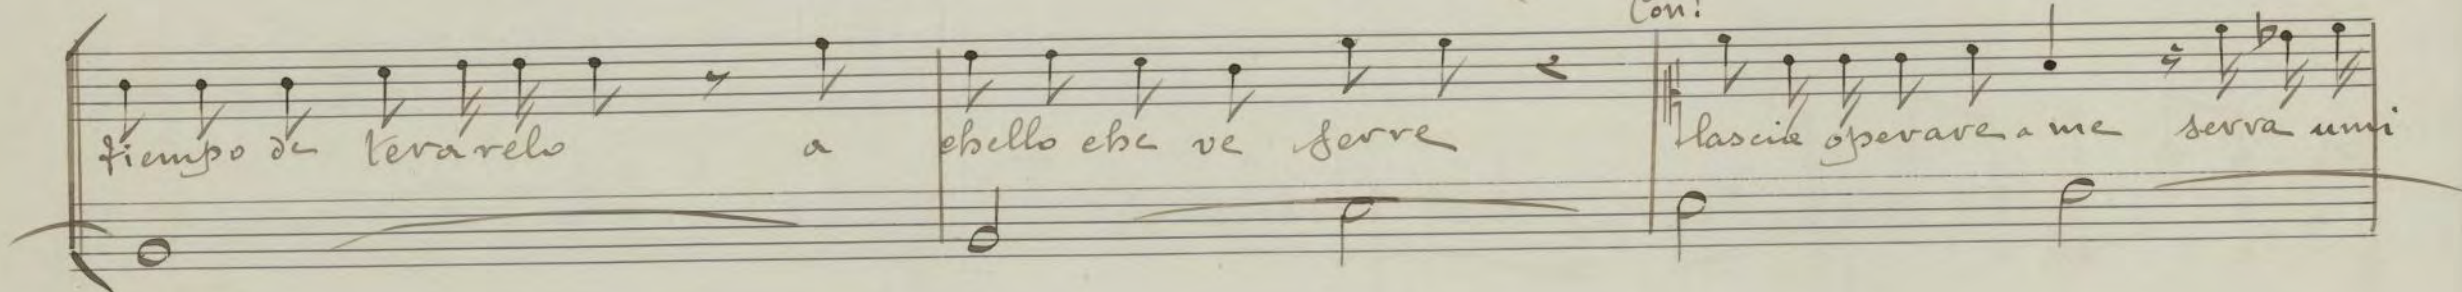 Con:
tiempo de terarelo a chello che ve serve lascia operare a me serva umi